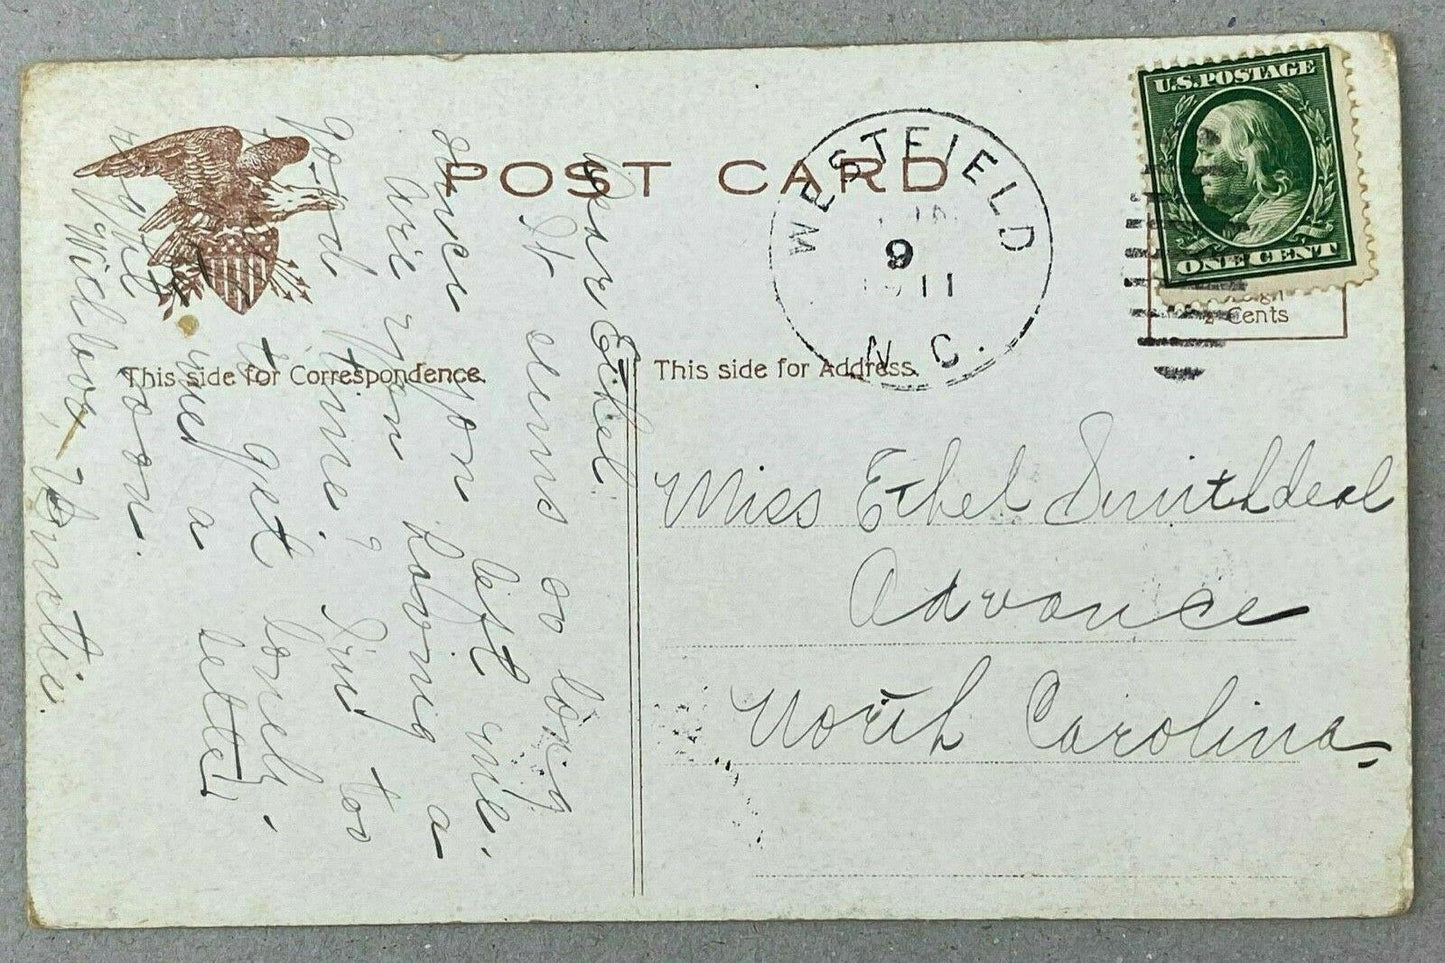 POST CARD
WESTFIELD
9
1911
N.C.
U.S. POSTAGE
ONE CENT
2 Cents
This side for Correspondence.
This side for Address.
Dear Ethel
It seems so long
since you left me.
Are you having a
good time? I'm too
to get lonely.
I used a letter
write soon.
With love,
Miss Ethel Smithdeal
Advance
North Carolina